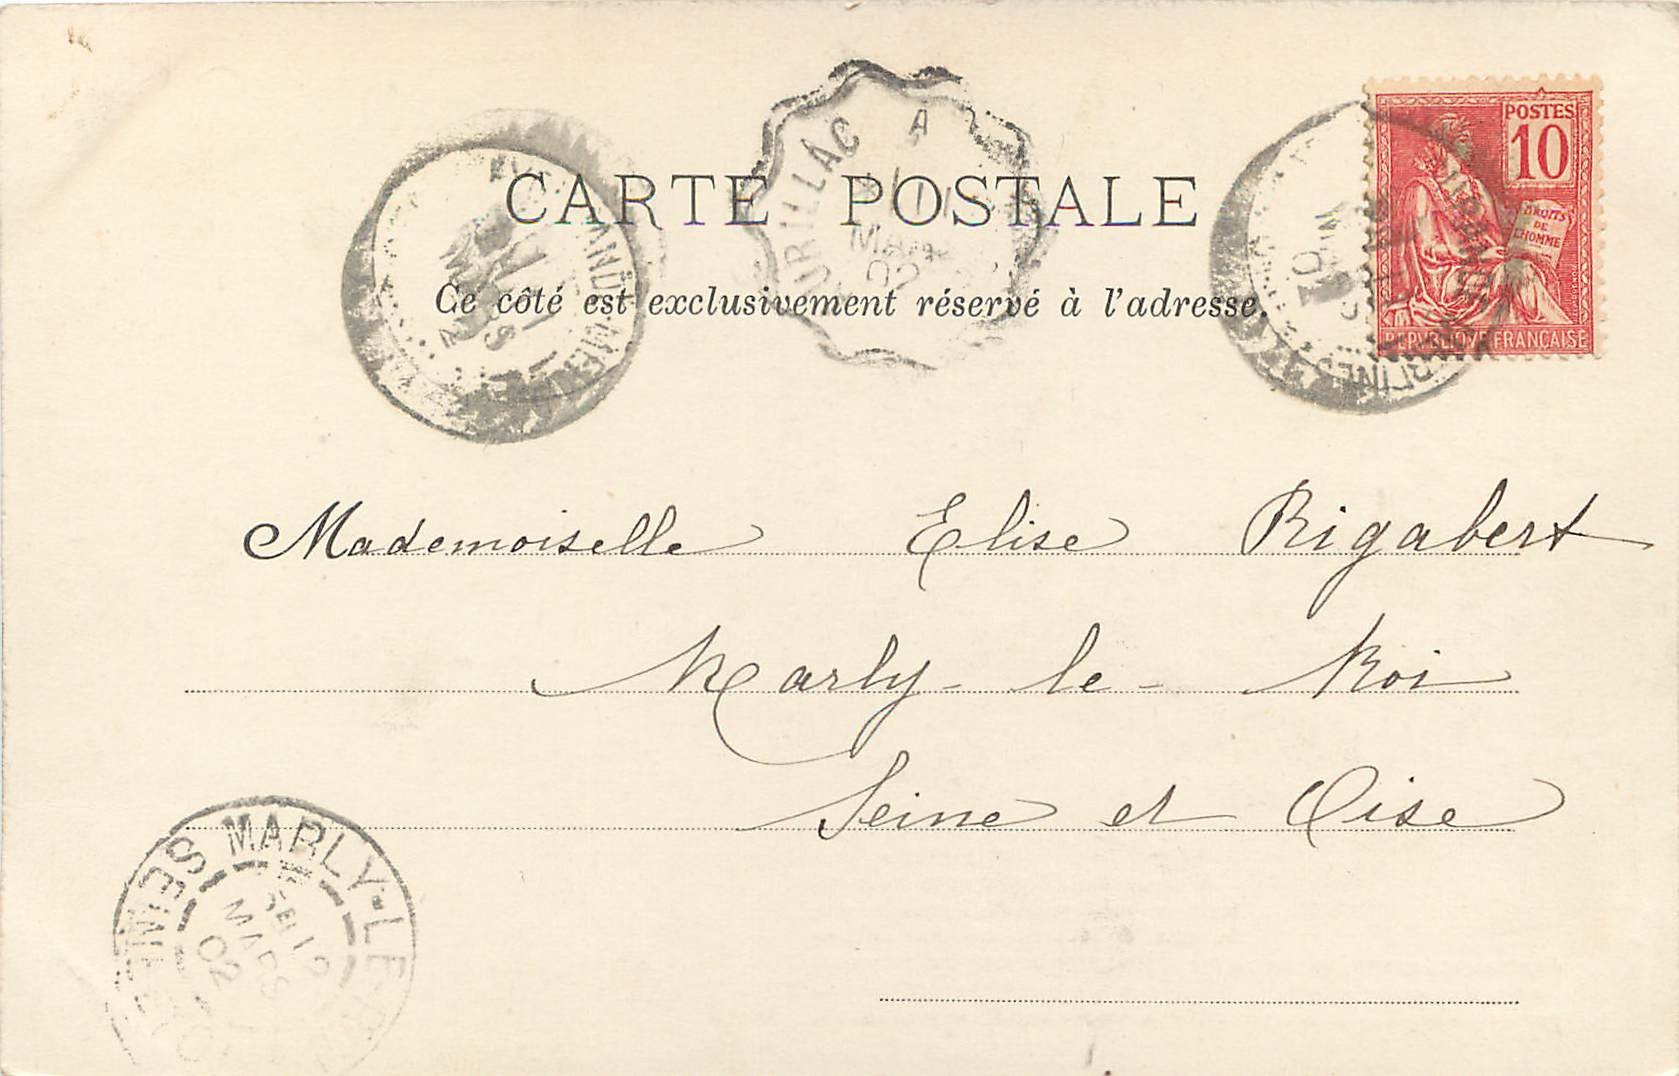 CARTE POSTALE
Ce côté est exclusivement réservé à l'adresse.
POSTES
10
DROITS
DE
L'HOMME
REPVBLIQVE FRANÇAISE
URILLAC A
11
MARS
02
Mademoiselle Elise Rigabert
Marly-le-Roi
Seine et Oise
MARLY-LE-ROI
SEINE
12
MARS
02